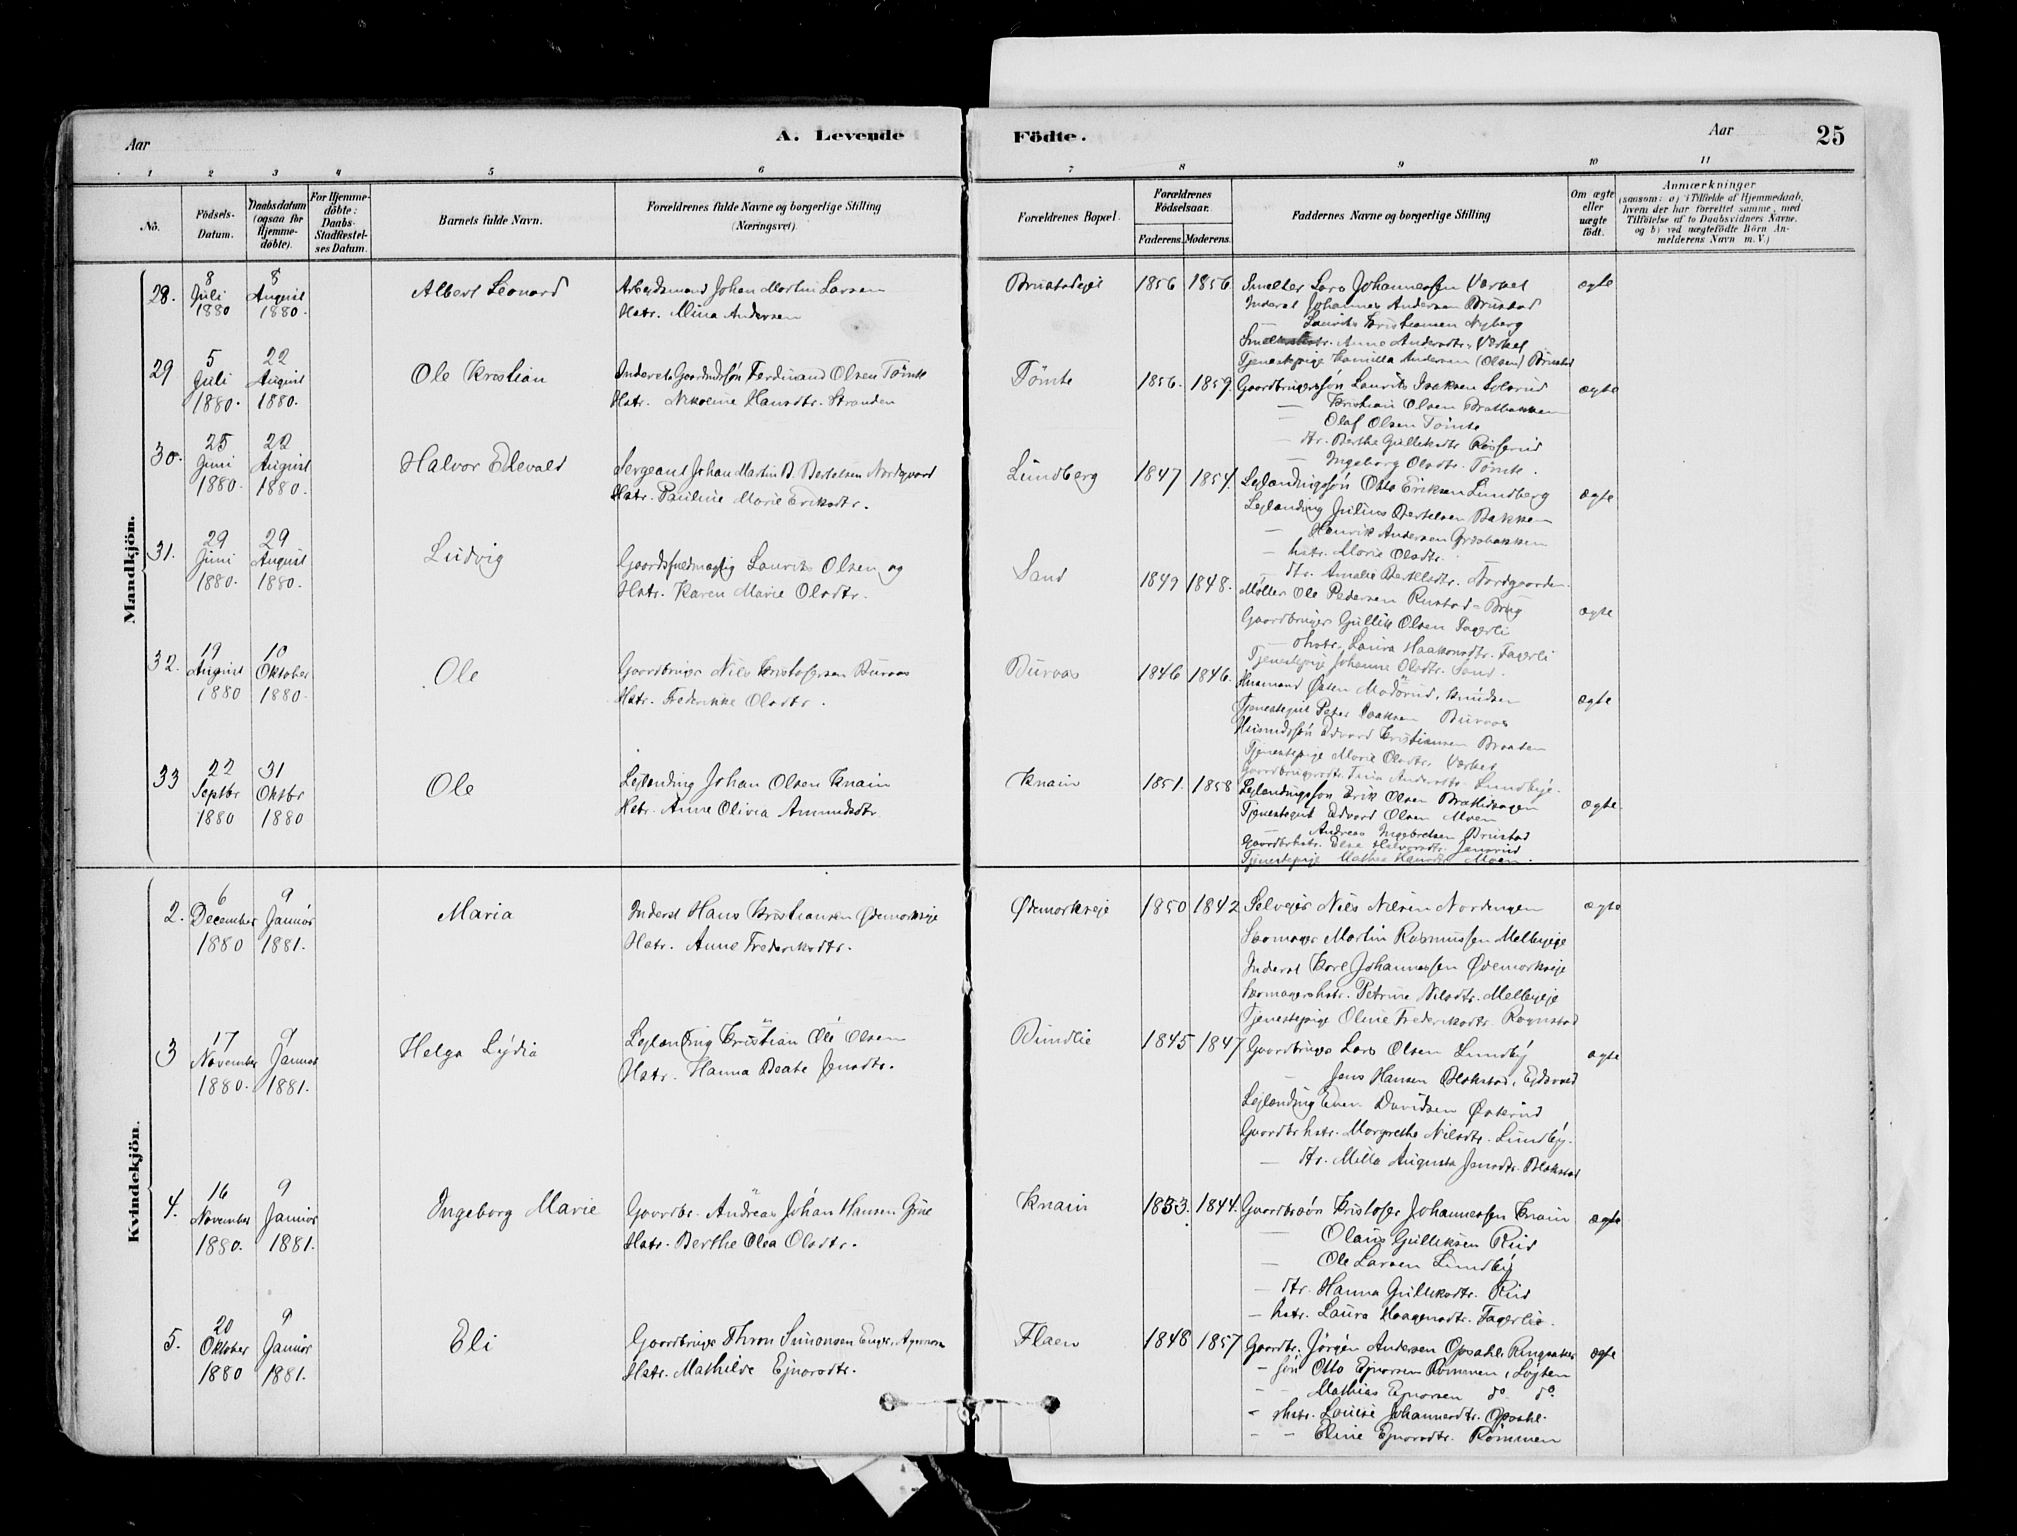 Aar
A. Levende
Födte.
Aar
25
1 2 3 4 5 6 7 8 9 10 11
No.
Födsels-Datum.
Daabsdatum (ogsaa for Hjemme-döbte).
For Hjemme-döbte: Daabs Stadfæstel-ses Datum.
Barnets fulde Navn.
Forældrenes fulde Navne og borgerlige Stilling (Næringsvei).
Forældrenes Bopæl.
Forældrenes Födselsaar.
Faderens. Moderens.
Faddernes Navne og borgerlige Stilling
Om ægte eller uægte födt.
Anmærkninger
(saasom: a) i Tilfælde af Hjemmedaab, hvem der har forrettet samme, med Tilföielse af to Daabsvidners Navne, og b) ved uægtefödte Börn An-melderens Navn m. V.)
Mandkjön.
28.
8 Juli 1880
8 August 1880.
Albert Leonard
Arbejdsmand Johan Martin Larsen
Hstr. Mina Andersen
Brustadejet
1856 1856.
Smelter Lars Johannessen Værket
Inderst Johannes Andersen Brustad
Laurits Kristiansen Nyberg
Anne Andersdtr. Værket
Tjenestepige Kamilla Andersen (Olsen) Brustad
ægte
29
5 Juli 1880.
22 August 1880.
Ole Kristian
Inderst Gaardmdssön Ferdinand Olsen Tömte
Hstr. Nikoline Hansdtr. Stranden
Tömte
1856. 1859.
Gaardbrugerssön Laurits Isaksen
— Kristian Olsen Bratbakken
Olaf Olsen Tömte
— dtr. Berthe Gulliksdtr.
— Ingeborg Olsdtr. Tömte.
ægte
30.
25 Juni 1880.
22 August 1880.
Halvor Edevald
Sergeant Johan Martin B. Bertelsen Nordgaard
Hstr. Pauline Marie Eriksdtr.
Lundberg
1847 1854.
Lejlændingssön Otto Eriksen Lundberg
Lejlænding Julius Bertelsen Bakken
— Henrik Andersen
— hstr. Marie Olsdtr.
— dtr. Amalie Bertelsdtr. Nordgaarden.
ægte
31.
29 Juni 1880.
29 August 1880.
Ludvig
Gaardsfuldmægtig Laurits Olsen og
Hstr. Karen Marie Olsdtr.
Sand
1849 1848.
Møller Ole Pedersen Rustad-Brug
Gaardbruger Gullik Olsen Fagerli
— hstr. Laura Haakonsdtr. Fagerli
Tjenestepige Johanne Olsdtr. Sand.
ægte
32.
19 August 1880
10 Oktober 1880.
Ole
Gaardbruger Nils Kristofersen Buraas
Hstr. Frederikke Olsdtr.
Buraas
1846 1846.
Husmand Østen Knudsen
Tjenestegut Peter Isaksen Buraas
Husmdssön Edvard Kristiansen Braaten
Tjenestepige Marie Olsdtr. Værket
Gaardbrugersdtr. Tina Andersdtr. Lundbyje.
ægte
33
22 Septbr 1880
31 Oktbr 1880
Ole
Lejlænding Johan Olsen Knain
Hstr. Anne Olivia Ammundsdtr.
Knain
1851. 1858
Lejlændingssön Erik Olsen
Tjenestegut Edvard Olsen Moen
Andreas Ingebretsen Brustad
Gaardbrhstr. Else Halvorsdtr. Jensrud
Tjenestepige Mathea Hansdtr. Moen.
ægte.
Kvindekjön.
2.
6 December 1880
9 Januar 1881.
Maria
Inderst Hans Kristiansen Ødemorkseje
Hstr. Anne Frederiksdtr.
Ødemorkseje
1850 1842
Selvejer Nils Nilsen Nordengen
Skomager Martin Rasmussen Melbyeje
Inderst Karl Johannessen Ødemorkseje
Skomagerhstr. Petrine Nilsdtr. Melbyeje
Tjenestepige Oline Frederiksdtr. Rognstad
ægte
3
17 November 1880.
9 Januar 1881.
Helga Lydia
Lejlænding Kristian Ole Olsen
Hstr. Hanna Beate Jensdtr.
Bundlie
1845 1847
Gaardbruger Lars Olsen Lundby
— Jens Hansen Blakstad, Ejdsvold
Lejlænding Even Davidsen Østerud
Gaardbrhstr. Margrethe Nilsdtr. Lundby.
— dtr. Milla Augusta Jensdtr. Blakstad
ægte
4.
16 November 1880.
9 Januar 1881.
Ingeborg Marie
Gaardbr. Andreas Johan Hansen Grue
Hstr. Berthe Olea Olsdtr.
Knain
1833. 1844.
Gaardbrsön Kristofer Johannessen Knain
— Olaus Gulliksen Rud
— Ole Larsen Lundby
— dtr. Hanna Gulliksdtr. Rud
— hstr. Laura Haagensdtr. Fagerlie.
ægte
5.
20 Oktober 1880
9 Januar 1881.
Eli
Gaardbruger Thron Simensen
Hstr. Mathilde Ejnarsdtr.
Flaen
1848 1857
Gaardbr. Jörgen Andersen Opsahl, Ringsaker
— sön Otto Ejnarsen Rommen, Løyten
— — Mathias Ejnarsen do do.
— hstr. Louise Johannesdtr. Opsahl.
— — Eline Ejnarsdtr. Rommen
ægte